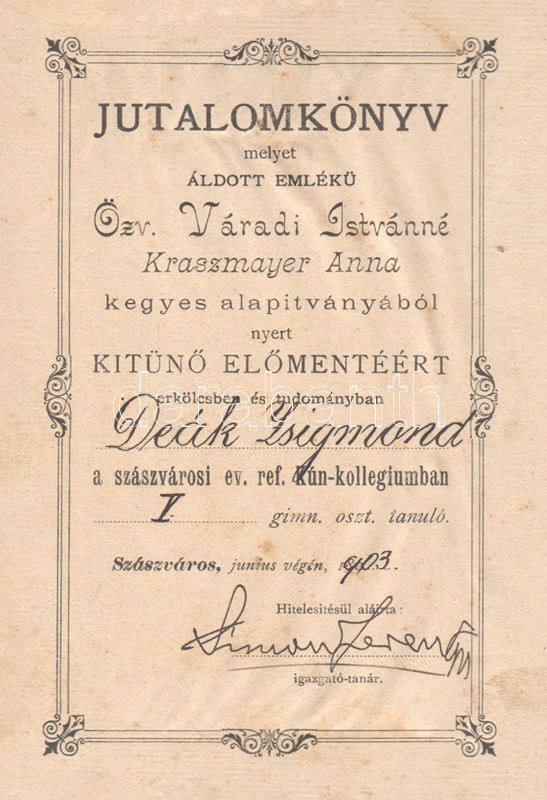 JUTALOMKÖNYV
melyet
ÁLDOTT EMLÉKÜ
Özv. Váradi Istvánné
Kraszmayer Anna
kegyes alapitványából
nyert
KITÜNŐ ELŐMENTÉÉRT
erkölcsben és tudományban
Deák Zsigmond
a szászvárosi ev. ref. Kún-kollegiumban
I gimn. oszt. tanuló.
Szászváros, junius végén, 1903.
Hitelesitésül aláirta:
Simon Ferenc
igazgató-tanár.
darabanth